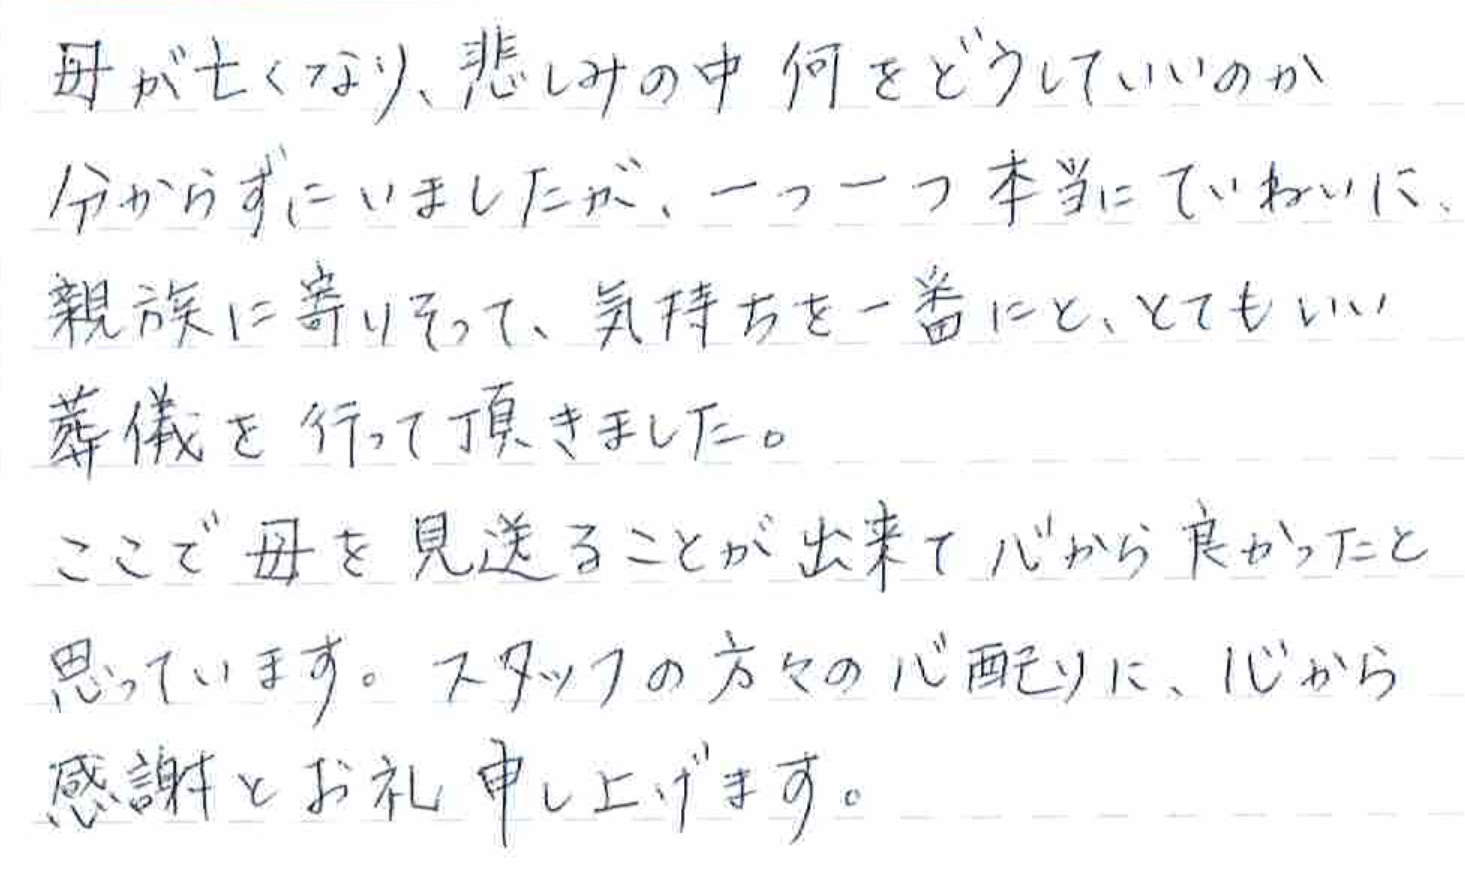 母が亡くなり、悲しみの中 何をどうしていいのか
分からずにいましたが、一つ一つ 本当にていねいに、
親族に寄りそって、気持ちを一番にと、とてもいい
葬儀を行って頂きました。
ここで母を見送ることが出来て心から良かったと
思っています。スタッフの方々の心配りに、心から
感謝とお礼申し上げます。